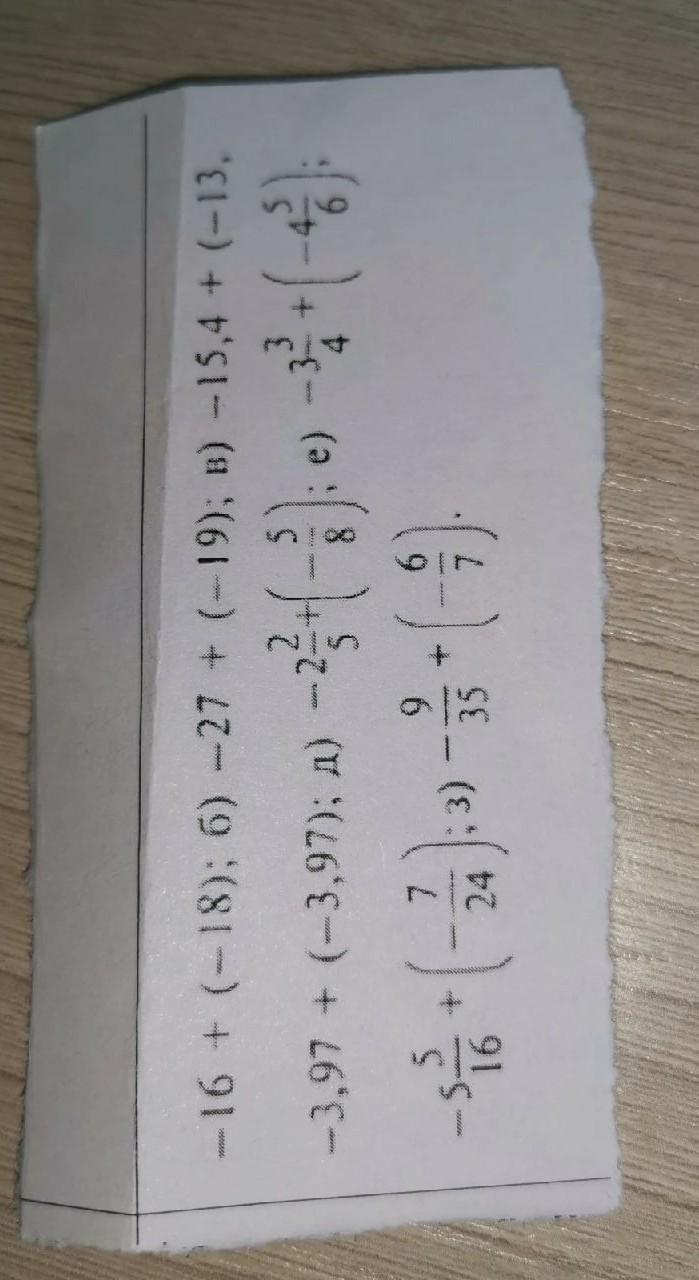 −16 + (−18); б) −27 + (−19); в) −15,4 + (−13,
−3,97 + (−3,97); д) −2 2/5 + (−5/8); е) −3 3/4 + (−4 5/6);
−5 5/16 + (−7/24); з) −9/35 + (−6/7).